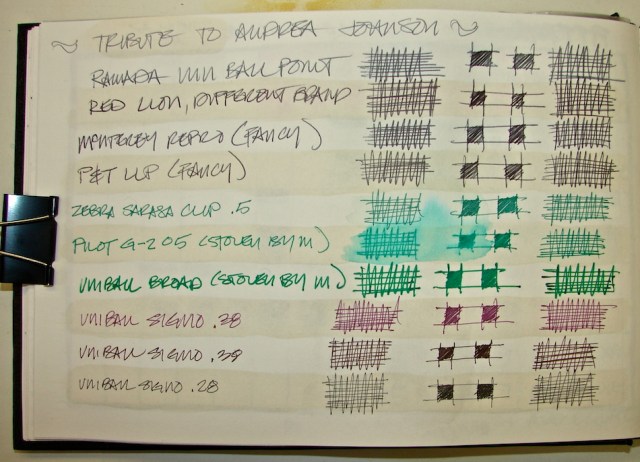 ~ TRIBUTE TO ANDREA JOHANSON ~
RAMADA INN BALL POINT
RED LION, DIFFERENT BRAND
MONTEREY REPRO (FANCY)
(FANCY)
ZEBRA SARASA CLIP .5
PILOT G-2 05 (STOLEN BY M)
UNIBALL BROAD (STOLEN BY M)
UNIBALL SIGNO .38
UNIBALL SIGNO .38
UNIBALL SIGNO .28